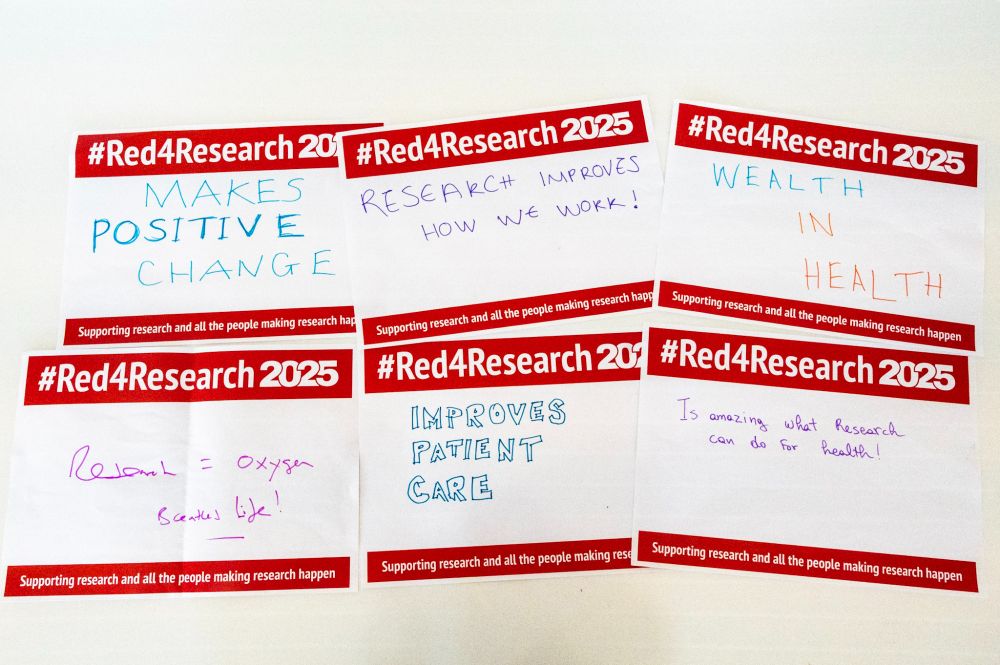 #Red4Research 202
MAKES
POSITIVE
CHANGE
Supporting research and all the people making research hap
#Red4Research 2025
RESEARCH IMPROVES
HOW WE WORK!
Supporting research and all the people making research happ
#Red4Research 2025
WEALTH
IN
HEALTH
Supporting research and all the people making research happen
#Red4Research 2025
Research = oxygen
Breathes Life!
Supporting research and all the people making research happen
#Red4Research 202
IMPROVES
PATIENT
CARE
Supporting research and all the people making rese
#Red4Research 2025
Is amazing what Research
can do for health!
Supporting research and all the people making research happen